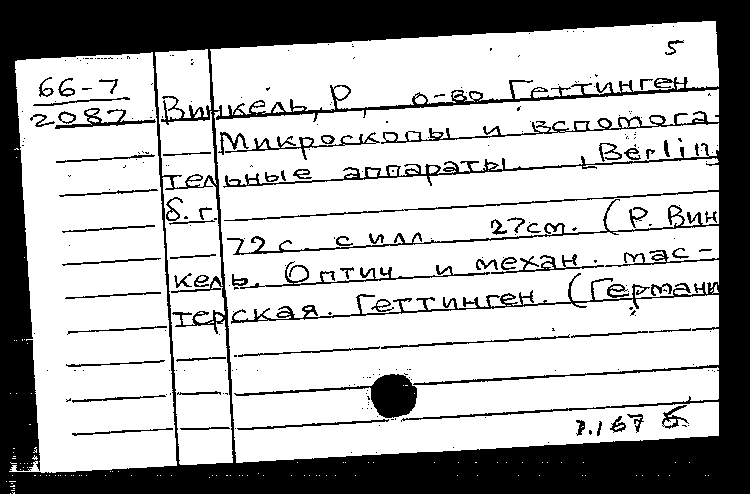 5
66-7
2087
Винкель, Р, о-во Геттинген
Микроскопы и вспомога-
тельные аппараты. [Berlin,
б. г.
72 с. с илл. 27cm. (Р. Вин
кель. Оптич. и механ. мас-
терская. Геттинген. (Германи